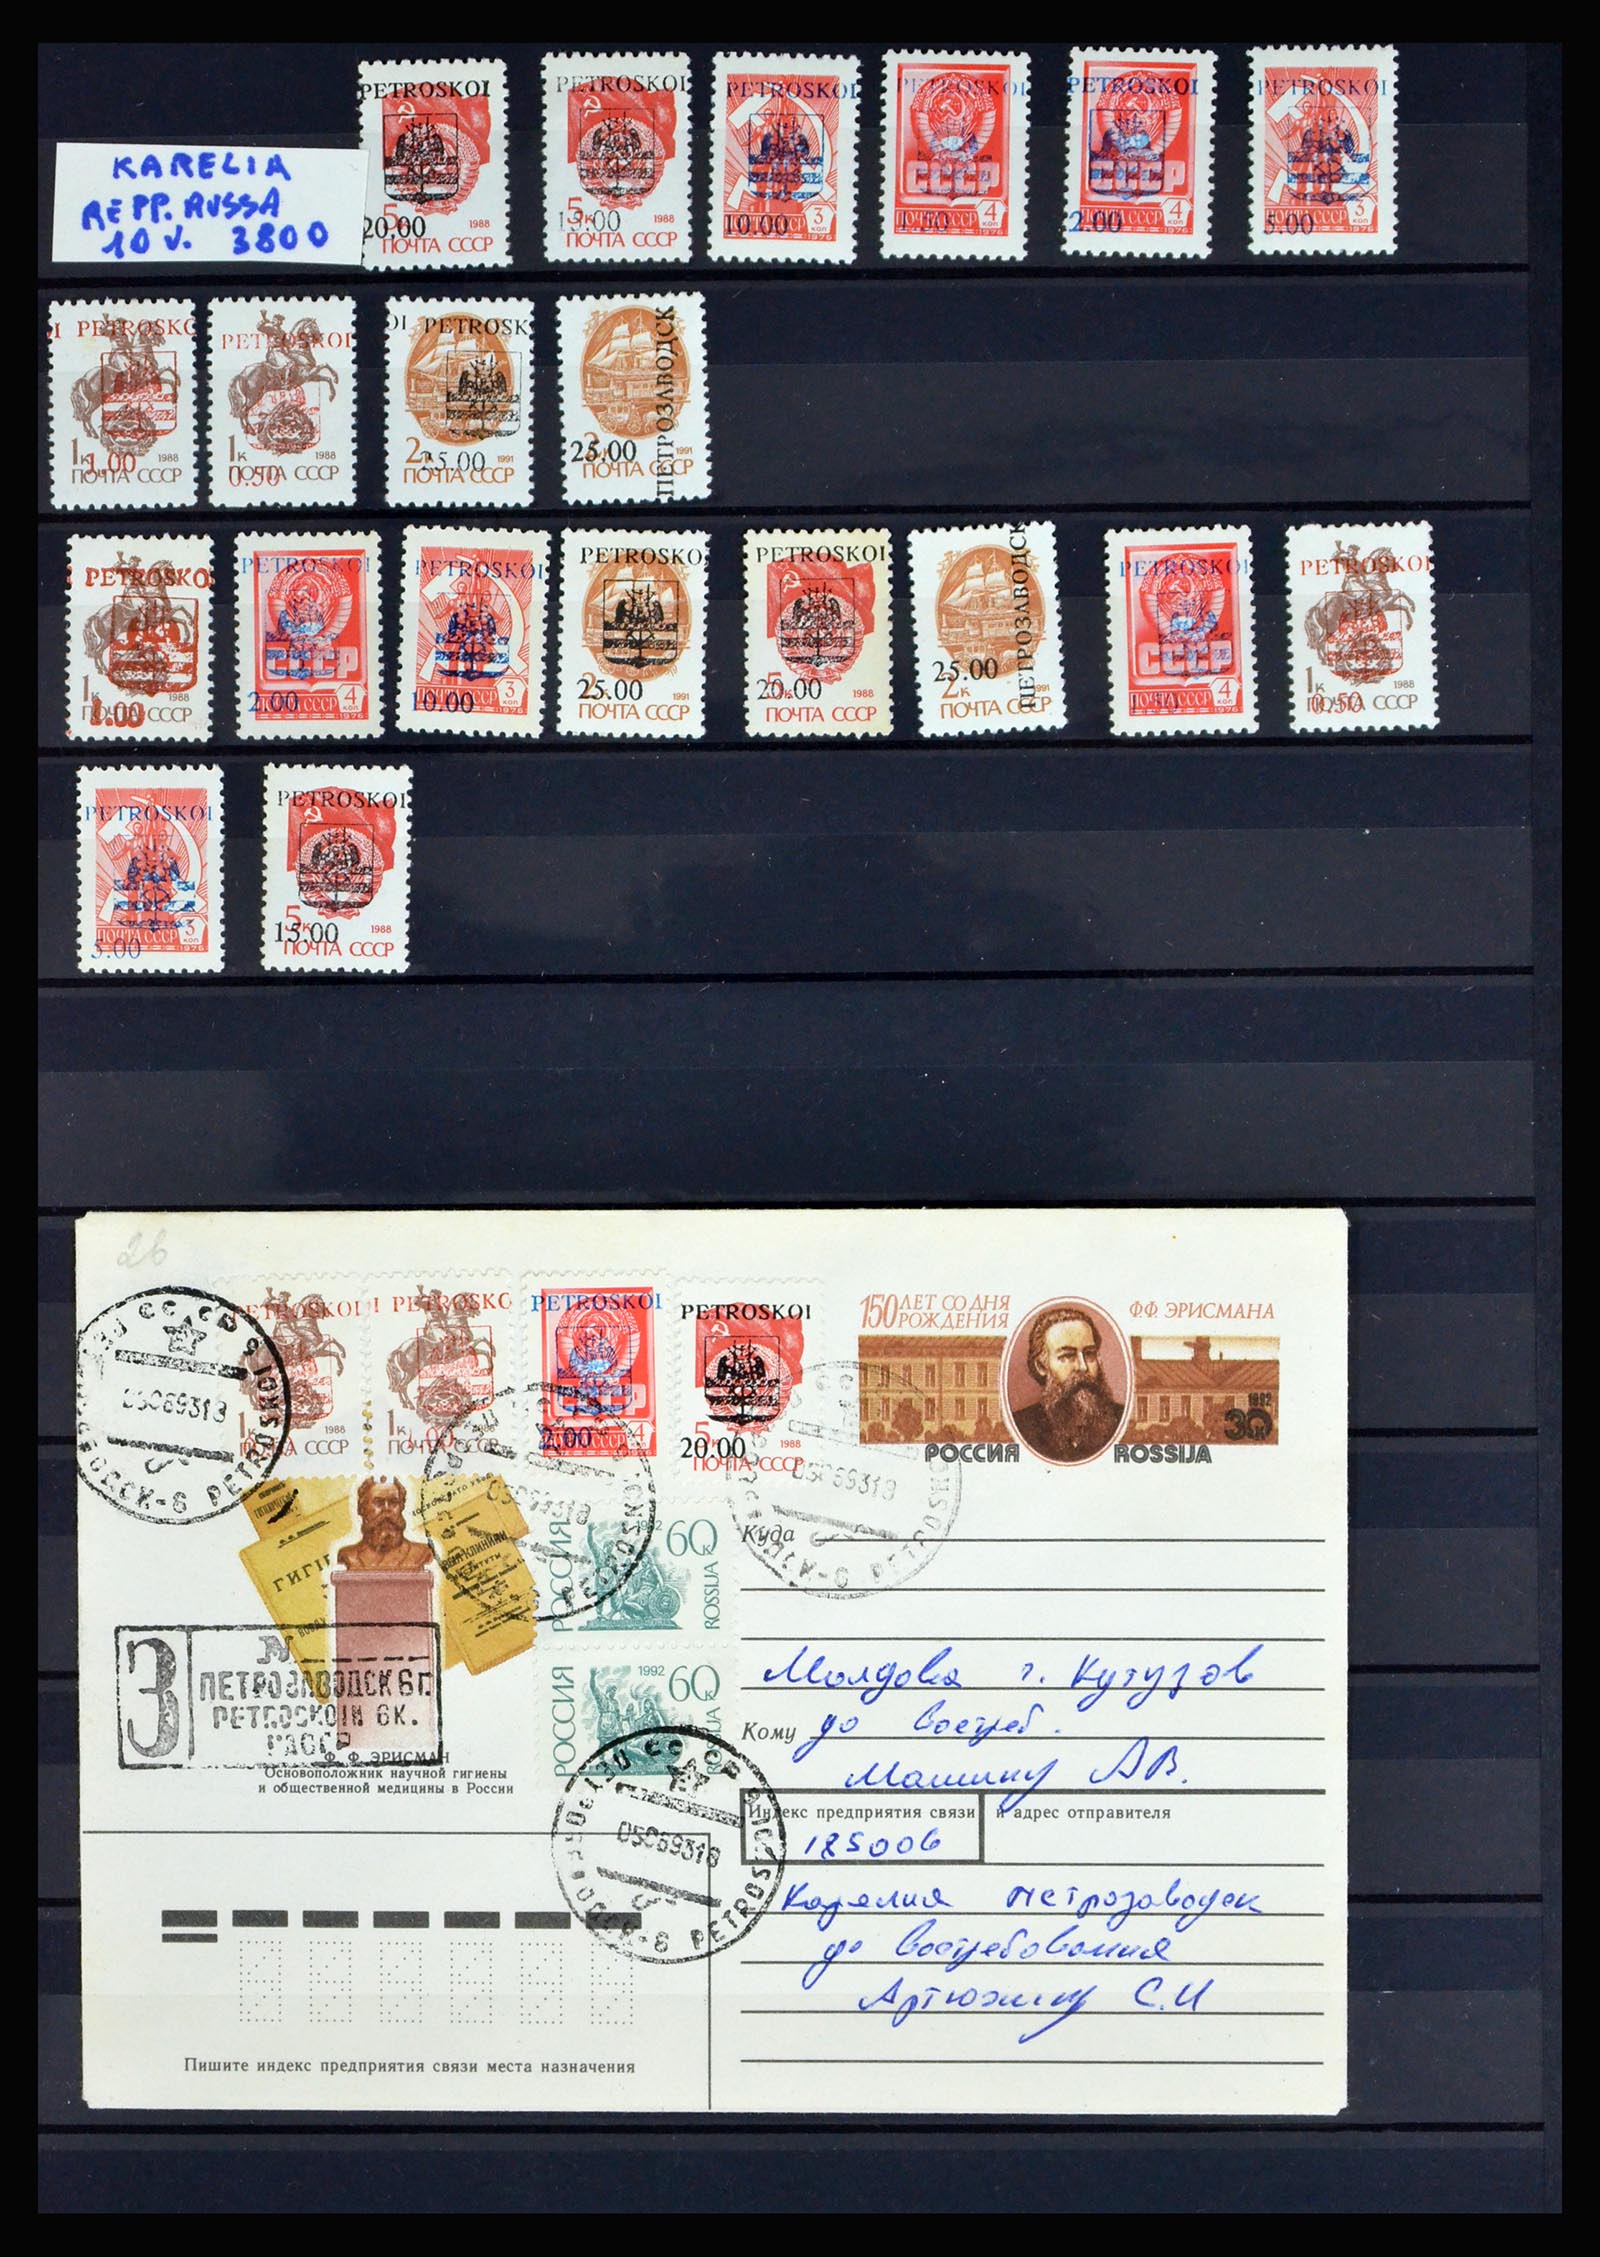 KARELIA
REPP. RUSSA
10 V. 3800
PETROSKOI
5к 1988
20.00
ПОЧТА СССР
PETROSKOI
5к 1988
15.00
ПОЧТА СССР
PETROSKOI
10.00
ПОЧТА СССР 3 коп
1976
PETROSKOI
СССР
ПОЧТА 4 коп
1976
PETROSKOI
СССР
2.00
ПОЧТА СССР 4 коп
1976
PETROSKOI
5.00
ПОЧТА СССР 3 коп
1976
I PETROSKO
1к 1988
1.00
ПОЧТА СССР
PETROSKOI
1к 1988
0.50
ПОЧТА СССР
OI PETROSK
2к 1991
25.00
ПОЧТА СССР
ПЕТРОЗАВОДСК
2к 1991
25.00
ПОЧТА СССР
PETROSKO
1к 1988
1.00
ПОЧТА СССР
PETROSKOI
СССР
2.00
ПОЧТА СССР 4 коп
1976
PETROSKOI
10.00
ПОЧТА СССР 3 коп
1976
PETROSKO
2к 1991
25.00
ПОЧТА СССР
PETROSKOI
5к 1988
20.00
ПОЧТА СССР
ПЕТРОЗАВОДСК
25.00
2к 1991
ПОЧТА СССР
PETROSKOI
СССР
ПОЧТА СССР 4 коп
1976
PETROSKOI
1к 1988
0.50
ПОЧТА СССР
PETROSKOI
ПОЧТА СССР 3 коп
5.00 1976
PETROSKOI
5к 1988
15.00
ПОЧТА СССР
26
PETROSKOI
1к 1988
ПОЧТА СССР
I PETROSKO
1к 1988
1.00
ПОЧТА СССР
PETROSKOI
СССР
2.00
ПОЧТА СССР 4
PETROSKOI
5к 1988
20.00
ПОЧТА СССР
150 ЛЕТ СО ДНЯ
РОЖДЕНИЯ
Ф.Ф. ЭРИСМАНА
1992
30к
РОССИЯ ROSSIJA
СССР
05069318
PETROSKOI
05069318
PETROSKOI
05069318
PETROSKOI
ГИГИЕ
РОССИЯ 1992 60к ROSSIJA
РОССИЯ 1992 60к ROSSIJA
З
№
ПЕТРОЗАВОДСК 6 Г.
PETROSKOIN 6 K.
РАССР
Ф. Ф. ЭРИСМАН
Основоположник научной гигиены
и общественной медицины в России
СССР
05069318
PETROSKOI
Куда
Молдова г. Кутузов
Кому до востреб.
Машину А В.
Индекс предприятия связи и адрес отправителя
185006
Карелия Петрозаводск
до востребования
С.И
Пишите индекс предприятия связи места назначения